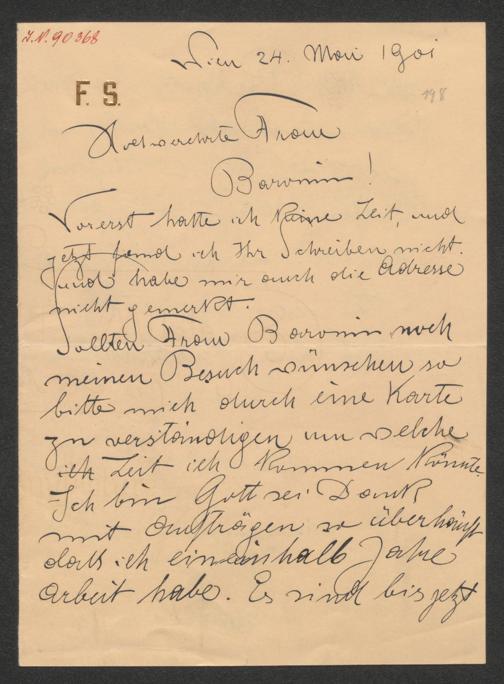 J.N. 90368
Wien 24. Mai 1901
F. S.
198
Hochverehrte Frau
Baronin!
Vorerst hatte ich keine Zeit, und
jetzt fand ich Ihr Schreiben nicht.
und habe mir auch die Adresse
nicht gemerkt.
Sollten Frau Baronin noch
meinen Besuch wünschen so
bitte mich durch eine Karte
zu verständigen um welche
ich Zeit ich kommen könnte.
Ich bin Gott sei Dank
mit Aufträgen so überhäuft
dass ich eineinhalb Jahre
Arbeit habe. Es sind bis jetzt